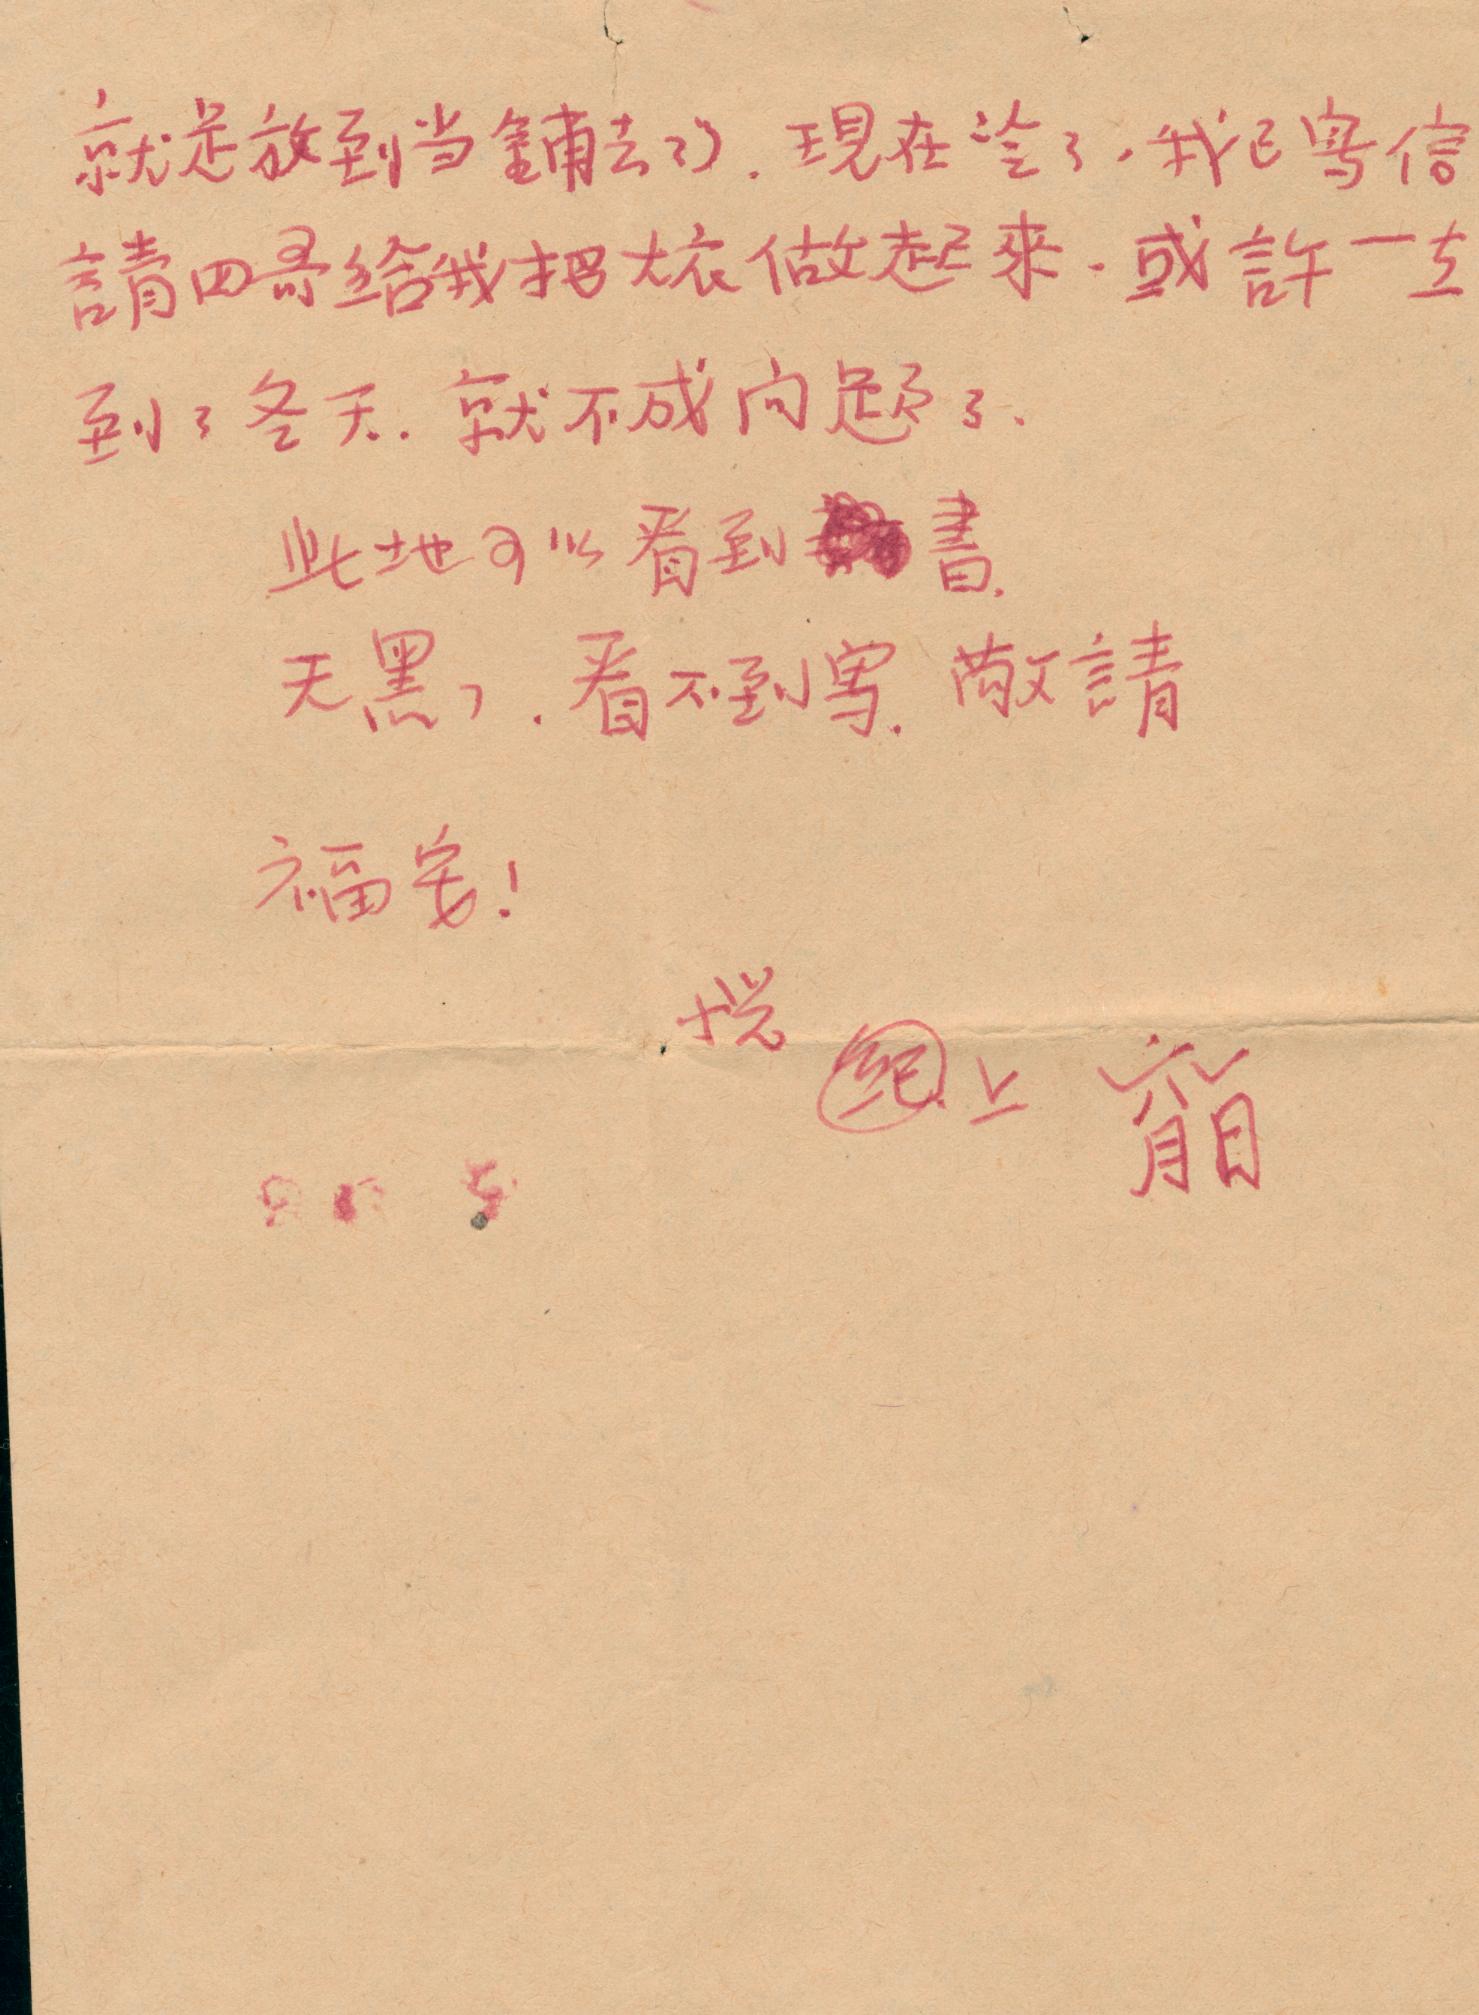 就是放到当鋪去了). 現在冷了, 我已寫信
請四哥給我把大衣做起來. 或許一
到了冬天. 就不成向題了.
此地可以看到書.
天黑了. 看不到寫. 敬請
福安!
悦
紀.上